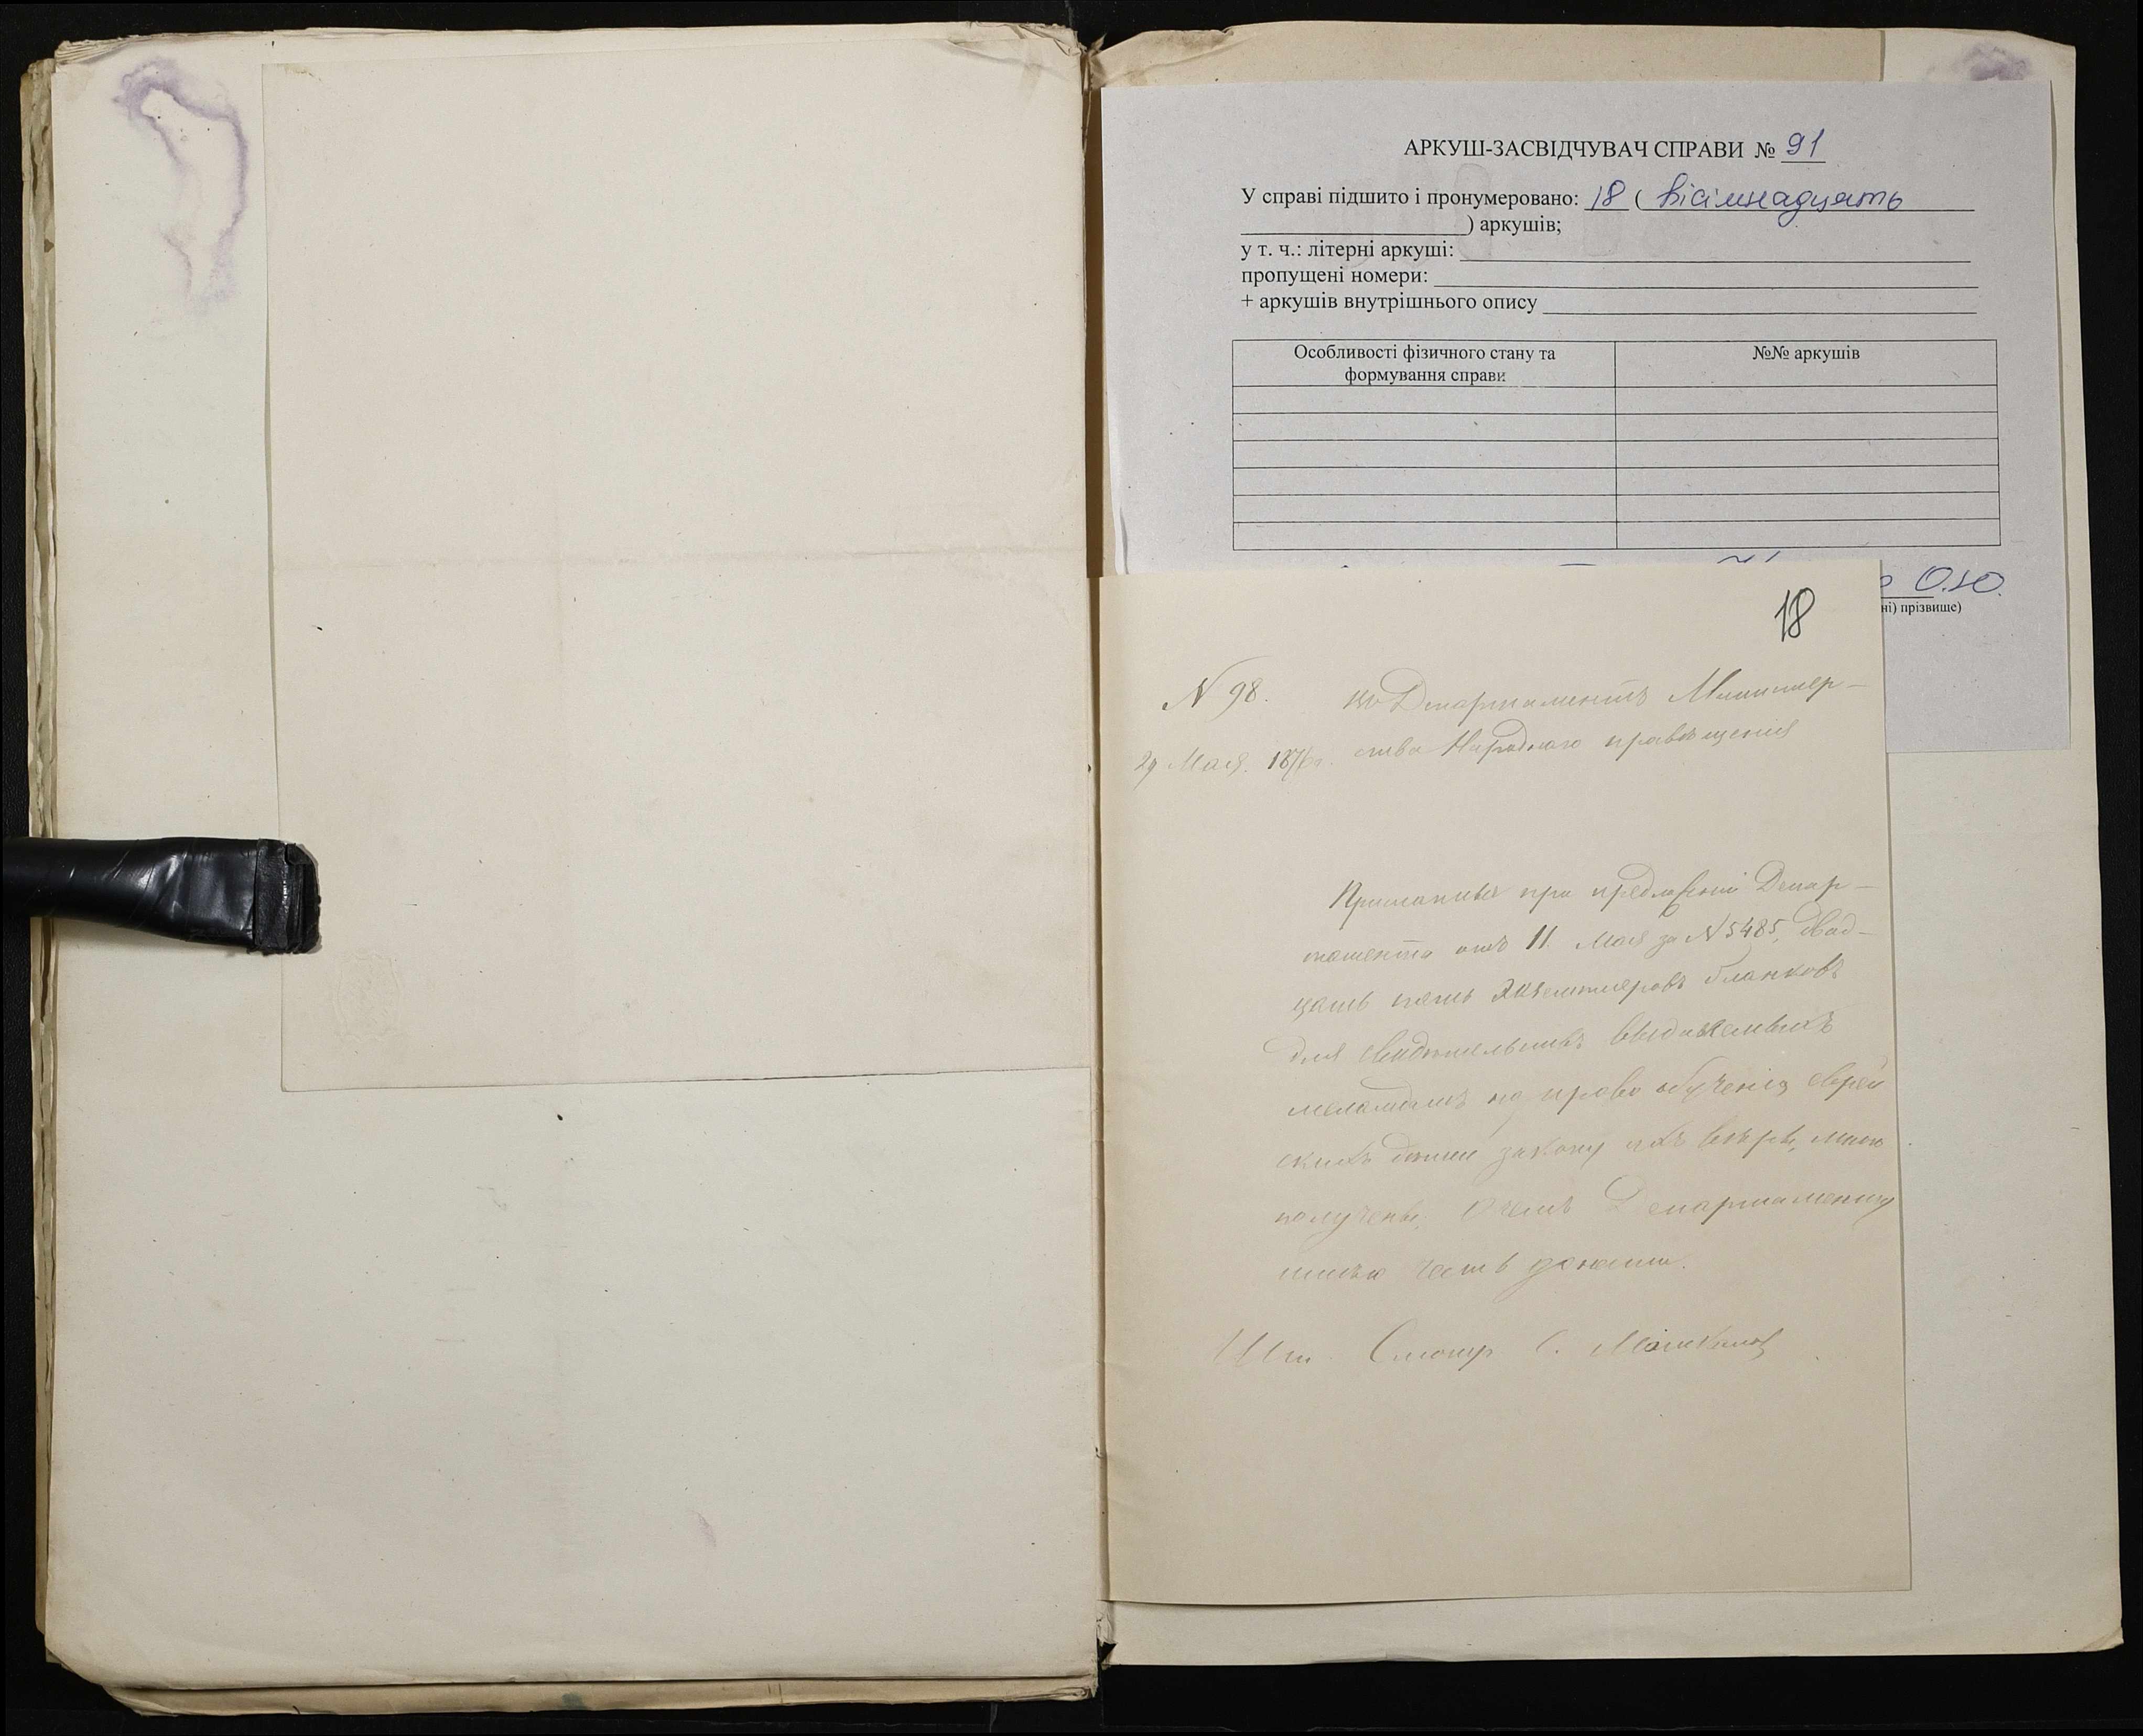 АРКУШ-ЗАСВІДЧУВАЧ СПРАВИ № 91
У справі підшито і пронумеровано: 18 ( вісімнадцять
) аркушів;
у т. ч.: літерні аркуші:
пропущені номери:
+ аркушів внутрішнього опису
Особливості фізичного стану та
формування справи
№№ аркушів
О.Ю.
ні) прізвище)
18
N 98.
29 Мая. 1876 г.
Въ Департаментъ Министер-
ства Народнаго просвѣщенія
Присланные при предложеніи Депар-
тамента отъ 11 Мая за N 5485, двад-
цать пять экземпляровъ бланковъ
для свидѣтельствъ выдаваемыхъ
меламдамъ на право обученія еврей
скихъ дѣтей закону ихъ вѣры, мною
получены, о чемъ Департаменту
имѣю честь донести.
Шт. Смотр С.